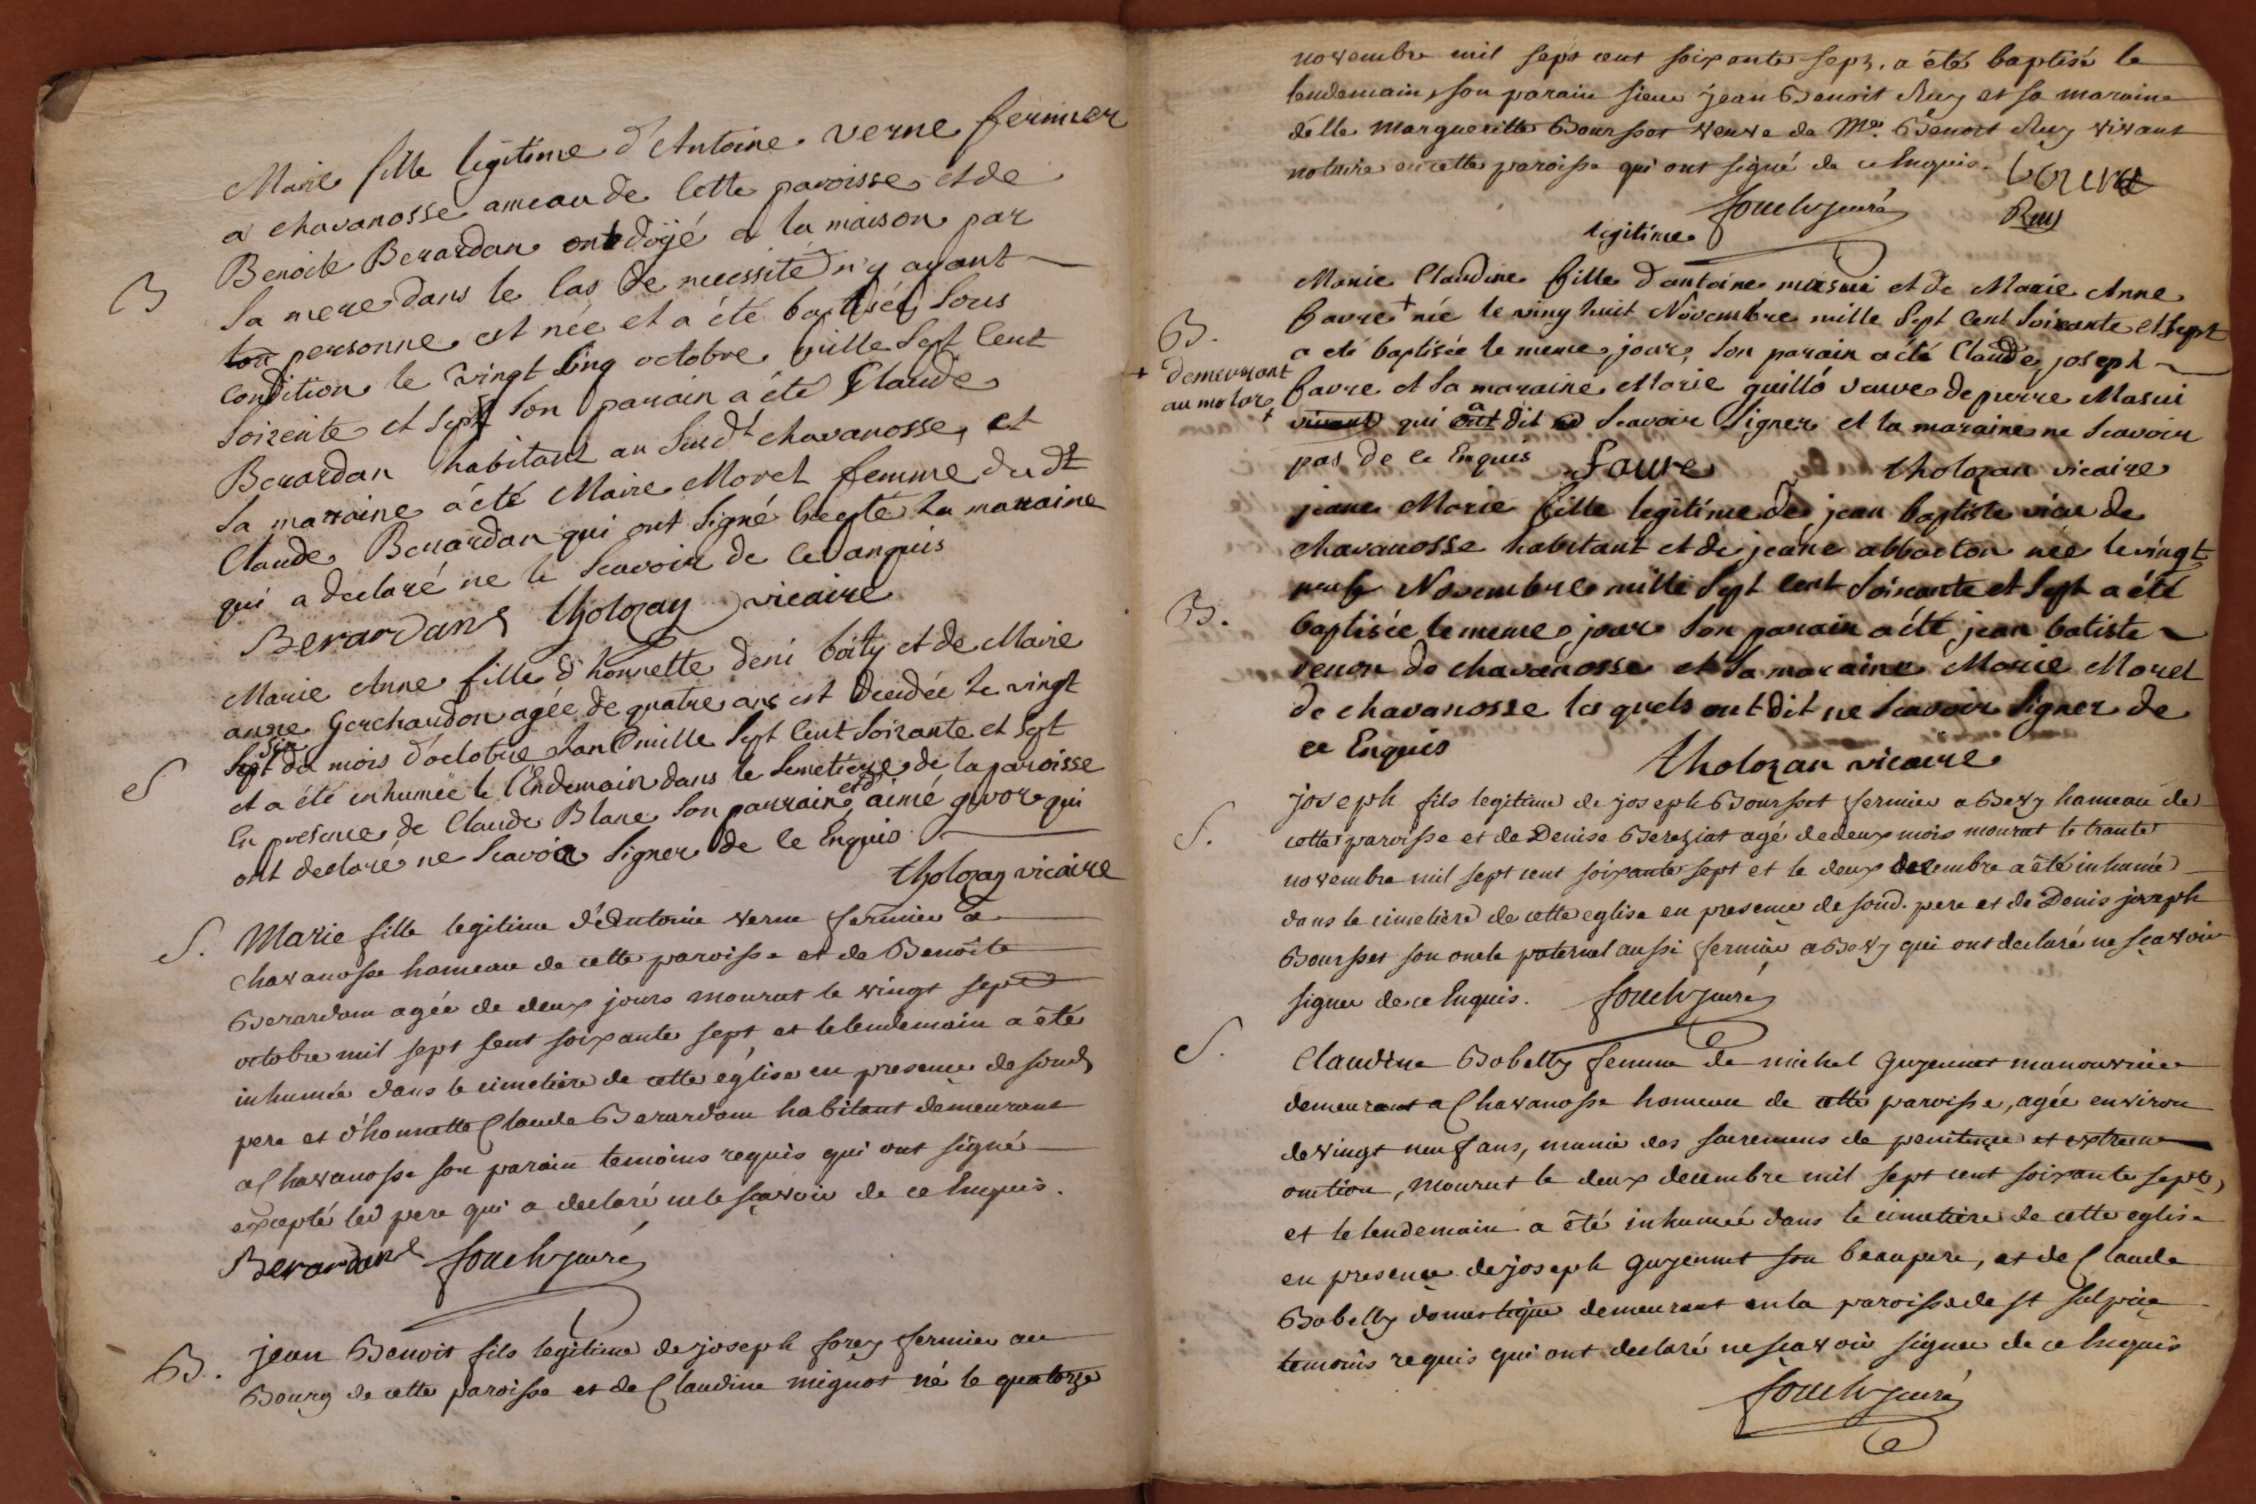 Marie fille legitime d'Antoine Verne fermier
a chavanosse ameau de cette paroisse et de
Benoite Berardan ondoyé a la maison par
B
sa mere dans le cas de necessité n'y ayant
personne est née et a été baptisée sous
condition le vingt cinq octobre mille sept cent
soixente et sept son parain a été Claude
Berardan habitant au susdt chavanosse, et
sa marraine a été Marie Morel femme du dt
Claude Berardan qui ont signé excepté la marraine
qui a declaré ne le scavoir de ce anquis
Berardan tholozan vicaire
Marie Anne fille d'honnette deni boity et de Marie
anne Gerchaudon agée de quatre ans est decedée le vingt
six
sept du mois d'octobre l'an mille sept cent soixante et sept
S
et a été inhumée le l'Endemain dans le semetiere de la paroisse
En presence de Claude Blanc son parrain et d'aimé givor qui
ont declaré ne scavoir signer de ce Enquis
tholozan vicaire
S. Marie fille legitime d'Antoine Verne fermier a
chavanosse hameau de cette paroisse et de Benoîte
Berardan agée de deux jours mourut le vingt sept
octobre mil sept cent soixante sept et le lendemain a été
inhumée dans le cimetiere de cette église en presence de soud
pere et d'honnette Claude Berardan habitant demeurant
a Chavanosse son parain temoins requis qui ont signé
excepté led pere qui a declaré ne le sçavoir de ce Enquis.
Berardan fouch curé
B. jean Benoit fils legitime de joseph forey fermier au
Bourg de cette paroisse et de Claudine mignot né le quatorze
novembre mil sept cent soixante sept. a été baptisé le
lendemain, son parain sieur jean Benoit Ruy et sa maraine
délle Margueritte Bourssot veuve de Me. Benoit Ruy vivant
notaire en cette paroisse qui ont signé de ce Enquis.
fouch curé
Ruy
legitime
Marie Claudine fille d'antoine masui et de Marie Anne
favre + née le ving huit Novembre mille sept cent soixante et sept
B.
a eté baptisée le meme jour, son parain a été Claude joseph
+ demeurant
au molar +
favre et sa maraine Marie guillo veuve de pierre Masui
vivant qui ont a dit scavoir signer et la maraine ne scavoir
pas de ce Enquis favre tholozan vicaire
jeane Marie fille legitime de jean baptiste de
chavanosse habitant et de jeane abbaeton née le vingt
neuf Novembre mille sept cent soixante et sept a été
B.
baptisée le meme jour son parain a été jean batiste
venon de chavanosse et sa maraine Marie Morel
de chavanosse les quels ont dit ne scavoir signer de
ce Enquis
tholozan vicaire
joseph fils legitime de joseph Boursset fermier a Bery hameau de
S.
cette paroisse et de Denise Bereziat agé de deux mois mourut le trante
novembre mil sept cent soixante sept et le deux decembre a été inhumé
dans le cimetiere de cette eglise en presence de soud. pere et de Denis joseph
Boursset son oncle paternel aussi fermier a Bery qui ont declaré ne sçavoir
signer de ce Enquis. fouch curé
S.
Claudine Bobelly femme de michel Guyennet manouvrier
demeurant a Chavanosse hameau de cette paroisse, agée environ
de vingt neuf ans, munie des sacremens de penitence et extreme
onction, mourut le deux decembre mil sept cent soixante sept,
et le lendemain a été inhumée dans le cimetiere de cette eglise
en presence de joseph Guyennet son beaupere, et de Claude
Bobelly domestique demeurant en la paroisse de st sulpice
temoins requis qui ont declaré ne sçavoir signer de ce Enquis
fouch curé